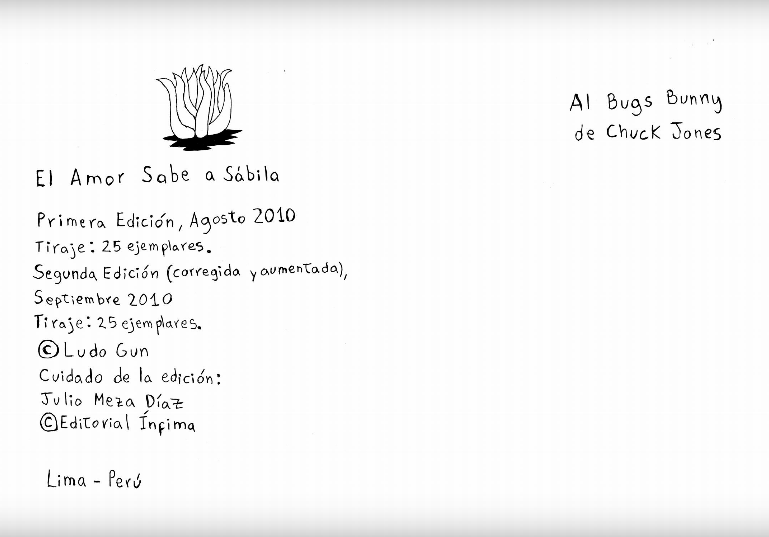 El Amor Sabe a Sábila
Primera Edición, Agosto 2010
Tiraje: 25 ejemplares.
Segunda Edición (corregida y aumentada),
Septiembre 2010
Tiraje: 25 ejemplares.
©Ludo Gun
Cuidado de la edición:
Julio Meza Díaz
©Editorial Ínfima
Lima - Perú
Al Bugs Bunny
de Chuck Jones